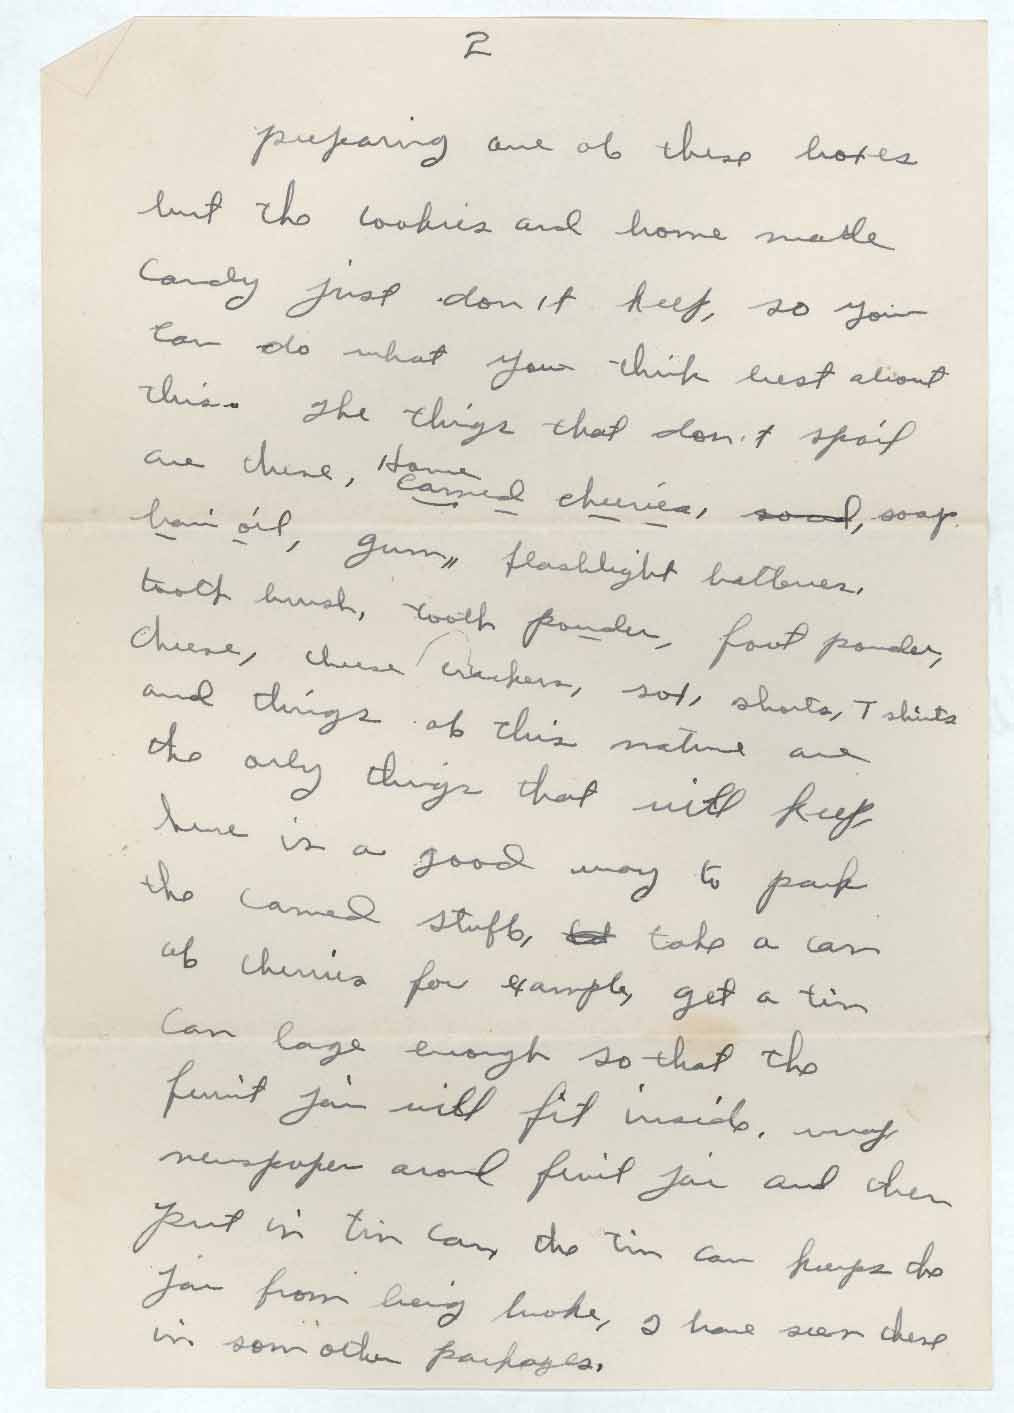 2
preparing one of these boxes
but the cookies and home made
Candy just don't keep, so you
can do what you think best about
this. The things that don't spoil
are these, Home
canned cherries, soap
hair oil, gum,, flashlight batteries.
tooth brush, tooth powder, foot powder,
Cheese, cheese crackers, sox, shorts, T shirts
and things of this nature are
the only things that will keep,
here is a good way to pack
the canned stuff, take a can
of cherries for example, get a tin
can lage enough so that the
fruit jar will fit inside. wrap
newspaper around fruit jar and then
put in tin can, the tin can keeps the
jar from being broke, I have seen these
in som other packages.